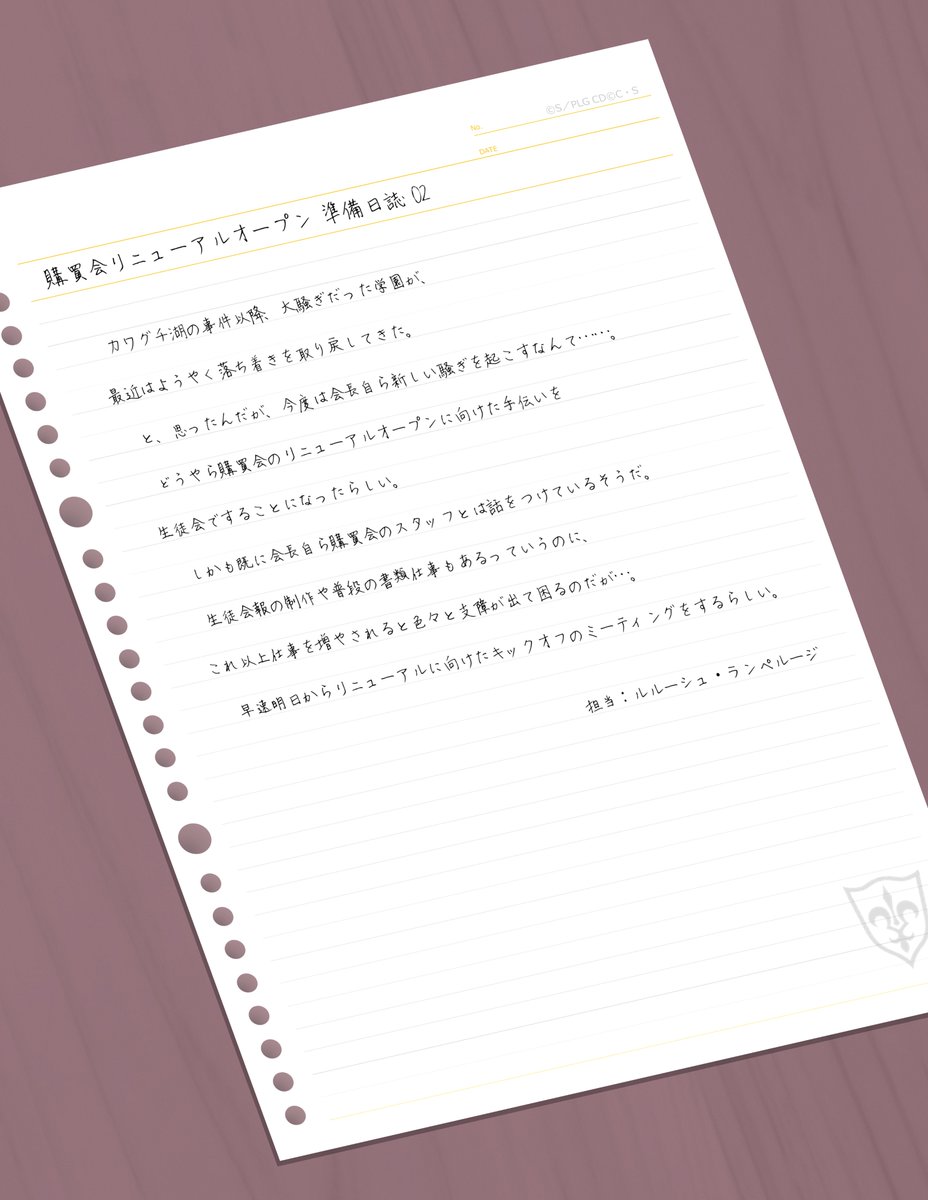 ©S／PLG CD©C・S
No.
DATE
購買会リニューアルオープン 準備日誌 02
カワグチ湖の事件以降、大騒ぎだった学園が、
最近はようやく落ち着きを取り戻してきた。
と、思ったんだが、今度は会長自ら新しい騒ぎを起こすなんて……。
どうやら購買会のリニューアルオープンに向けた手伝いを
生徒会ですることになったらしい。
しかも既に会長自ら購買会のスタッフとは話をつけているそうだ。
生徒会報の制作や普段の書類仕事もあるっていうのに、
これ以上仕事を増やされると色々と支障が出て困るのだが…。
早速明日からリニューアルに向けたキックオフのミーティングをするらしい。
担当：ルルーシュ・ランペルージ